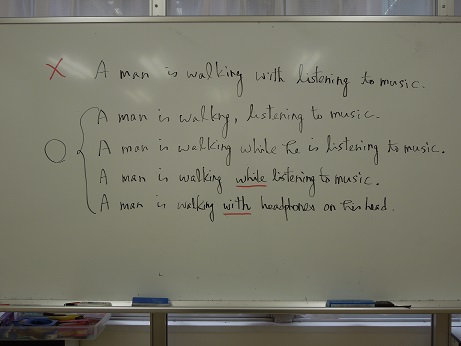 X A man is walking with listening to music.
A man is walking, listening to music.
O A man is walking while he is listening to music.
A man is walking while listening to music.
A man is walking with headphones on his head.